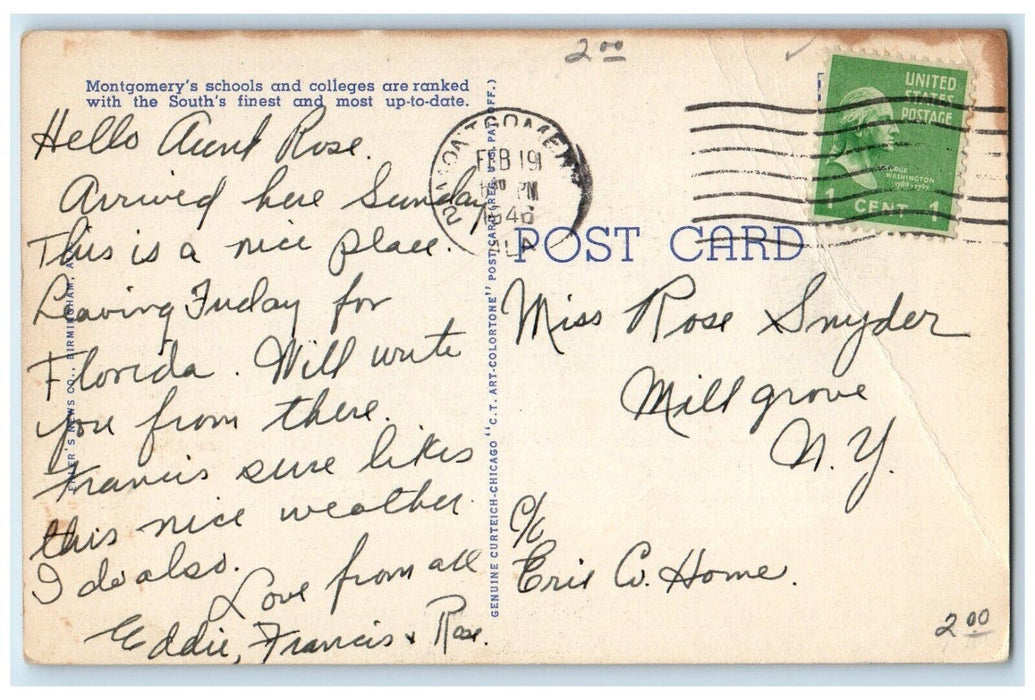 2 00
Montgomery's schools and colleges are ranked
with the South's finest and most up-to-date.
Hello Aunt Rose.
Arrived here Sunday
This is a nice place.
Leaving Friday for
Florida. Will write
you from there.
Francis sure likes
this nice weather.
I do also.
Love from all
Eddie, Francis & Rose.
NEWS CO., BIRMINGHAM,
GENUINE CURTEICH-CHICAGO "C.T. ART-COLORTONE" POST CARD (REG. U.S. PAT. OFF.)
MONTGOMERY
FEB 19
PM
1946
ALA
UNITED
STATES
POSTAGE
GEORGE
WASHINGTON
1789-1797
1 CENT 1
POST CARD
Miss Rose Snyder
Millgrove
N.Y.
c/o
Erie Co. Home.
2 00